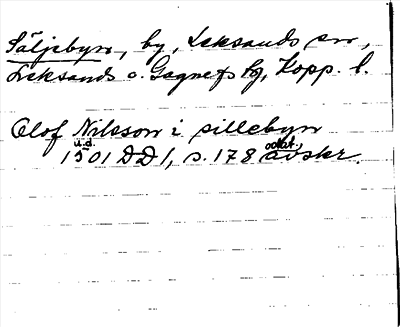 Säljebyn, by, Leksands sn,
Leksands o. Gagnefs tg, Kopp. l.
Olof Nilsson i sillebyn
u.d. odat.
1501 DD 1, s. 178 avskr.